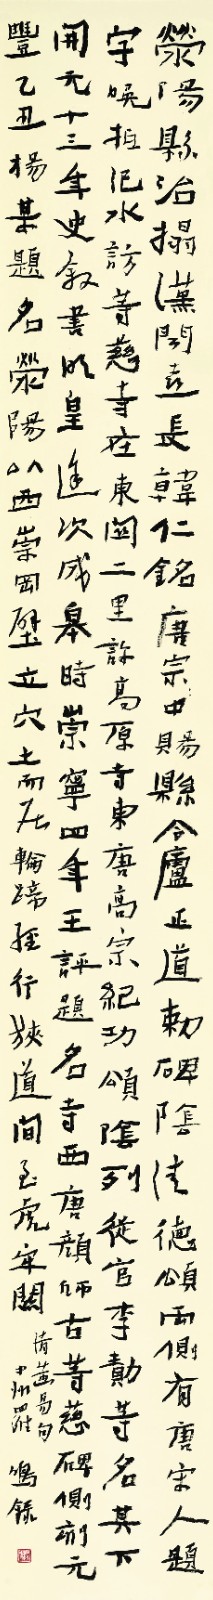 滎陽縣治搨漢聞憙長韓仁銘唐宗中賜縣令廬正道勅碑陰清德頌兩側有唐宋人題
字晚抵汜水訪等慈寺在東関二里許高原寺東唐高宗紀功頌陰列從官李勣等名其下
開元十三年史敘書明皇逢次成皋時崇寧四年王評題名寺西唐顏師古等慈碑側刻元
豐乙丑楊某題名滎陽以西崇岡壁立穴土而居輪蹄經行狹道間至虎牢關
清黃易句
鳴錄